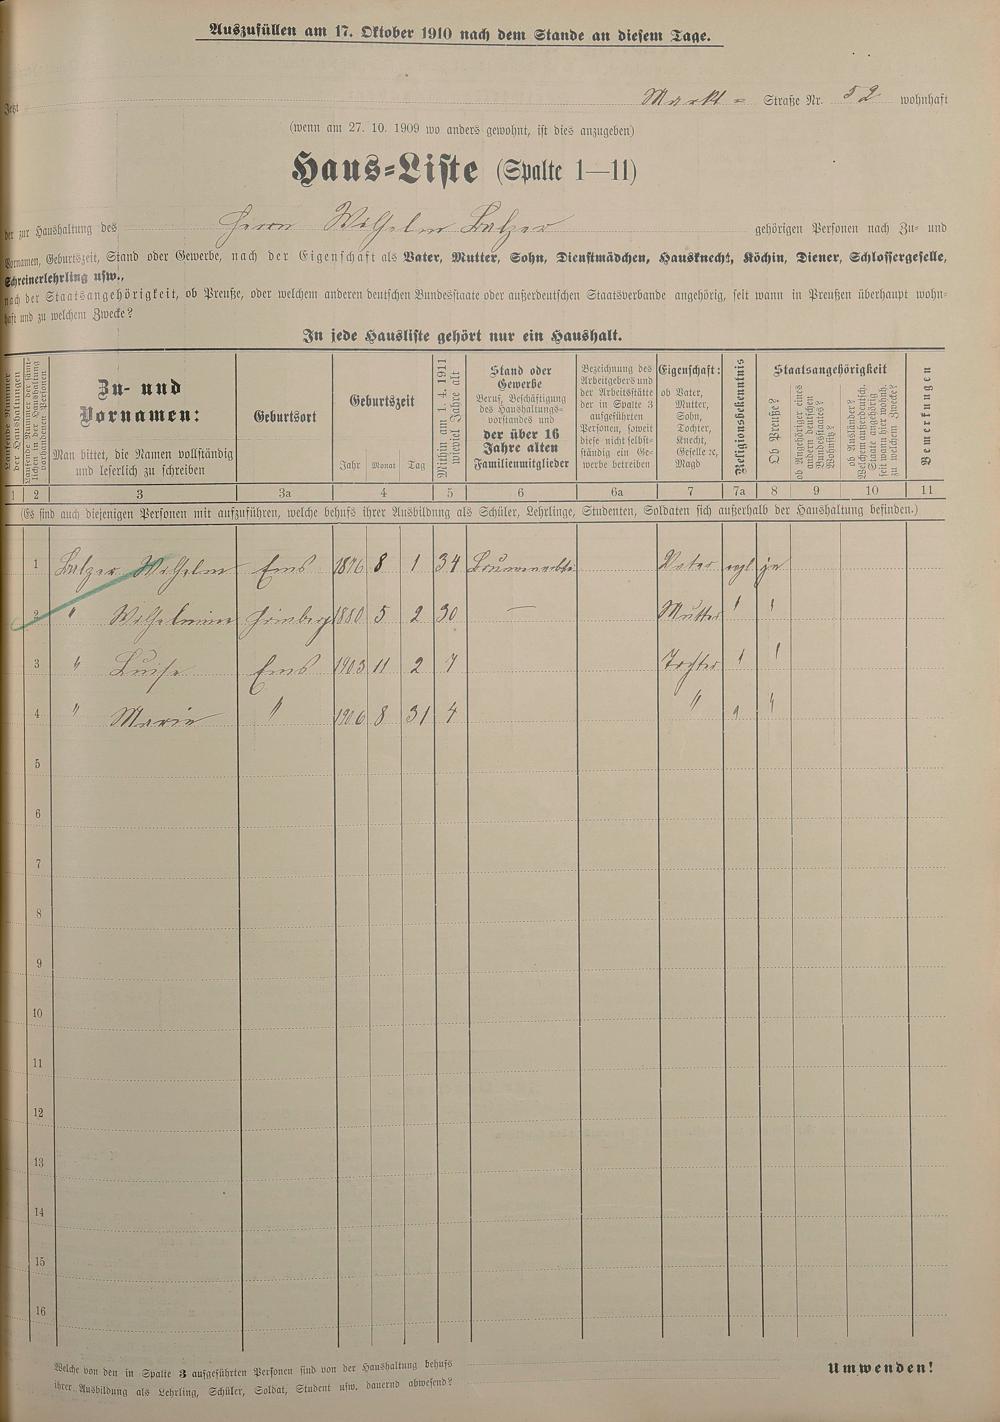 Auszufüllen am 17. Oktober 1910 nach dem Stande an diesem Tage.
Jetzt Markt = Straße Nr. 52 wohnhaft
(wenn am 27. 10. 1909 wo anders gewohnt, ist dies anzugeben)
Haus=Liste (Spalte 1—11)
der zur Haushaltung des Herrn Wilhelm Balzer gehörigen Personen nach Zu- und
Vornamen, Geburtszeit, Stand oder Gewerbe, nach der Eigenschaft als Vater, Mutter, Sohn, Dienstmädchen, Hausknecht, Köchin, Diener, Schlossergeselle,
Schreinerlehrling usw.,
nach der Staatsangehörigkeit, ob Preuße, oder welchem anderen deutschen Bundesstaate oder außerdeutschen Staatsverbande angehörig, seit wann in Preußen überhaupt wohn-
haft und zu welchem Zwecke?
In jede Hausliste gehört nur ein Haushalt.
Laufende Nummer der Haushaltungen
Laufende Nummer der sämt- lichen in der Haushaltung vorhandenen Personen
Zu- und
Vornamen:
Man bittet, die Namen vollständig
und leserlich zu schreiben
Geburtsort
Geburtszeit
Jahr Monat Tag
Mithin am 1. 4. 1911
wieviel Jahre alt
Stand oder
Gewerbe
Beruf, Beschäftigung
des Haushaltungs-
vorstandes und
der über 16
Jahre alten
Familienmitglieder
Bezeichnung des
Arbeitgebers und
der Arbeitsstätte
der in Spalte 3
aufgeführten
Personen, soweit
diese nicht selbst-
ständig ein Ge-
werbe betreiben
Eigenschaft:
ob Vater,
Mutter,
Sohn,
Tochter,
Knecht,
Geselle ec,
Magd
Religionsbekenntnis
Staatsangehörigkeit
Ob Preuße?
ob Angehöriger eines
andern deutschen
Bundesstaates?
Wohnsitz?
ob Ausländer?
Welchem außerdeutsch.
Staate angehörig
seit wann hier wohnh.
zu welchem Zwecke?
Bemerkungen
1 2 3 3a 4 5 6 6a 7 7a 8 9 10 11
(Es sind auch diejenigen Personen mit aufzuführen, welche behufs ihrer Ausbildung als Schüler, Lehrlinge, Studenten, Soldaten sich außerhalb der Haushaltung befinden.)
1 Balzer Wilhelm Ems 1876 8 1 34 Vater evgl ja
2 " Wilhelmine 1880 5 2 30 — Mutter " "
3 " Luise Ems 1903 11 2 7 Tochter " "
4 " Marie " 1906 8 31 4 " " "
5
6
7
8
9
10
11
12
13
14
15
16
Welche von den in Spalte 3 aufgeführten Personen sind von der Haushaltung behufs
ihrer Ausbildung als Lehrling, Schüler, Soldat, Student usw. dauernd abwesend?
Umwenden!